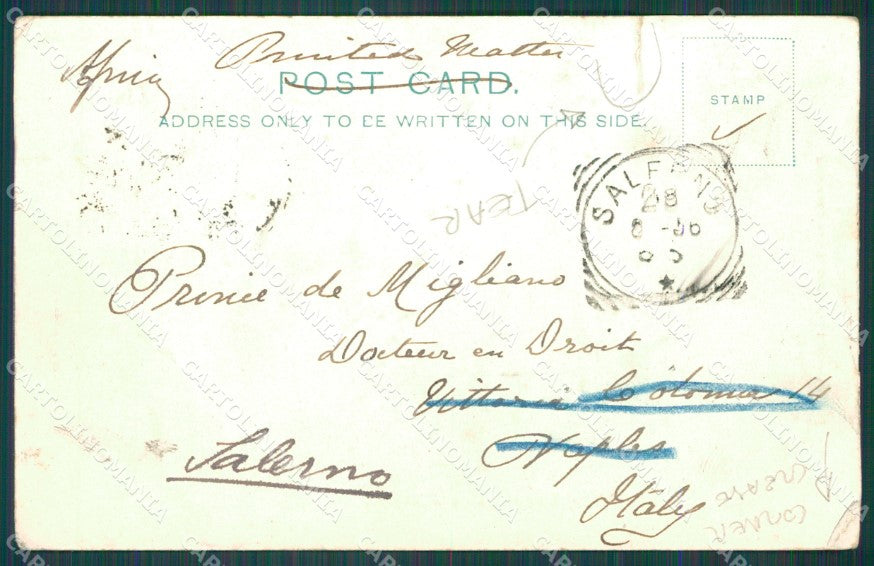 Africa
Printed Matter
POST CARD.
ADDRESS ONLY TO BE WRITTEN ON THIS SIDE.
STAMP
TEAR
SALERNO
28
8 - 06
Prince de Migliano
Docteur en Droit
Vittoria Colonna 14
Naples
Salerno
Italy
CORNER
CREASE
CARTOLINOMANIA